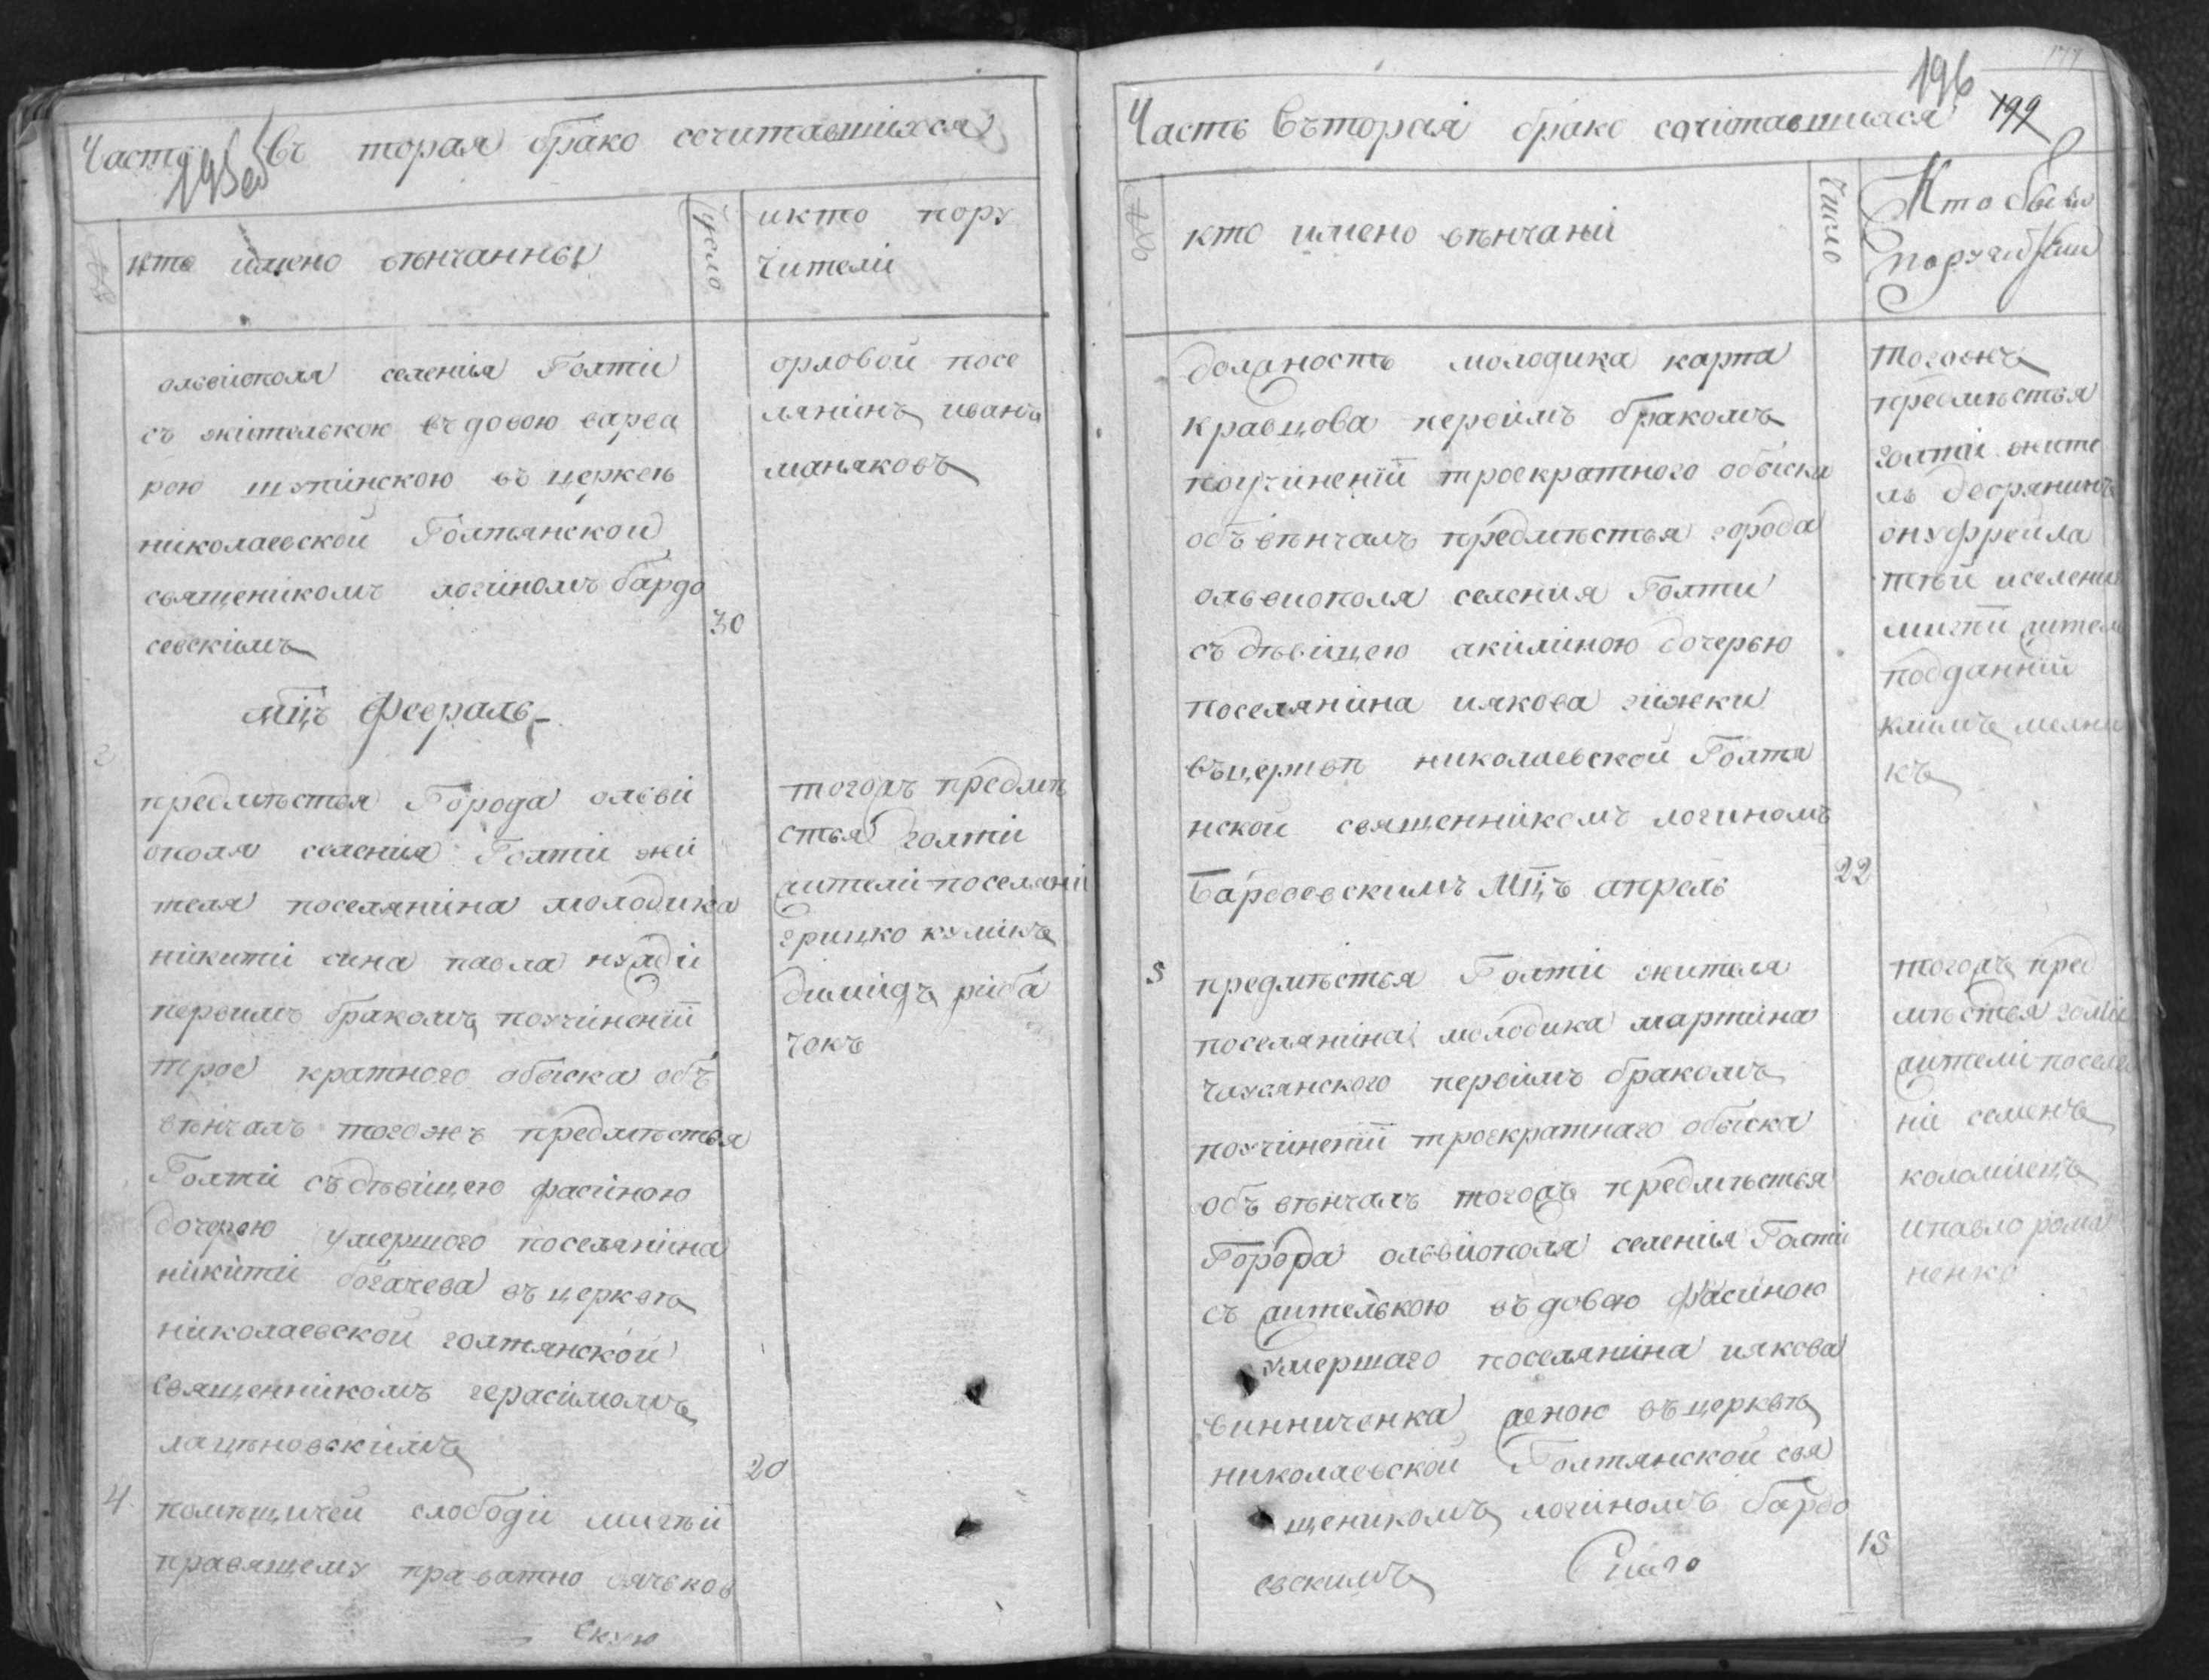 Часть въ торая брако сочитавшихся
195об
кто имено вѣнчанны
Число
икто пору
чители
олвиополя селенія Голти
съ жителькою въдовою варва
рою шупинскою въ церкви
николаевской Голтянской
священикомъ логіномъ бардо
севскімъ
30
орловой посе
лянинъ иванъ
маняковъ
мцъ Февраль
3
предмѣстья Города олвві
ополя селенія Голти жи
теля поселянина молодика
никити сина павла
первимъ бракомъ поучиненіи
трое кратного обыска объ
вѣнчалъ тогожъ предмѣстья
Голти съ дѣвицею фасиною
дочерю умершого поселянина
никити богачева въ церквѣ
николаевской голтянской
священникомъ герасимомъ
лацѣновскимъ
20
тогожъ предмѣ
стья голти
жители поселяни
грицко куликъ
димидъ риба
чокъ
4
помѣщичей слободи мигѣи
правящему
скую
196
199
177
Часть Въторая брако сочітавшихся
кто имено вѣнчани
Число
Кто были
поручител
должность молодика карпа
кравцова первимъ бракомъ
поучиненіи троекратного обыска
объвѣнчалъ предмѣстья города
ольвиополя селения Голти
съ дѣвицею акилиною дочерью
поселянина иякова гижки
въцерквѣ николаевской Голтя
нской священникомъ логиномъ
Бардосевскимъ Мцъ апрель
22
тогожъ
предмѣстья
голти жите
ль дворянинъ
онуфрейла
птѣй иселения
мигѣи жител
подданній
климъ мелни
къ
5
предмѣстья Голти жителя
поселянина молодика мартина
чаусянского первимъ бракомъ
поучиненіи троекратнаго обыска
объ вѣнчалъ тогожъ предмѣстья
Города ольвіополя селенія Голти
съ жителькою въдовою Фасиною
умершаго поселянина иякова
винниченка женою въ церквѣ
николаевской Голтянской свя
щеникомъ логіномъ бардо
евскимъ
15
тогожъ пред
мѣстья голті
жители поселя
ні семенъ
коломіецъ
ипавло рома
ненко